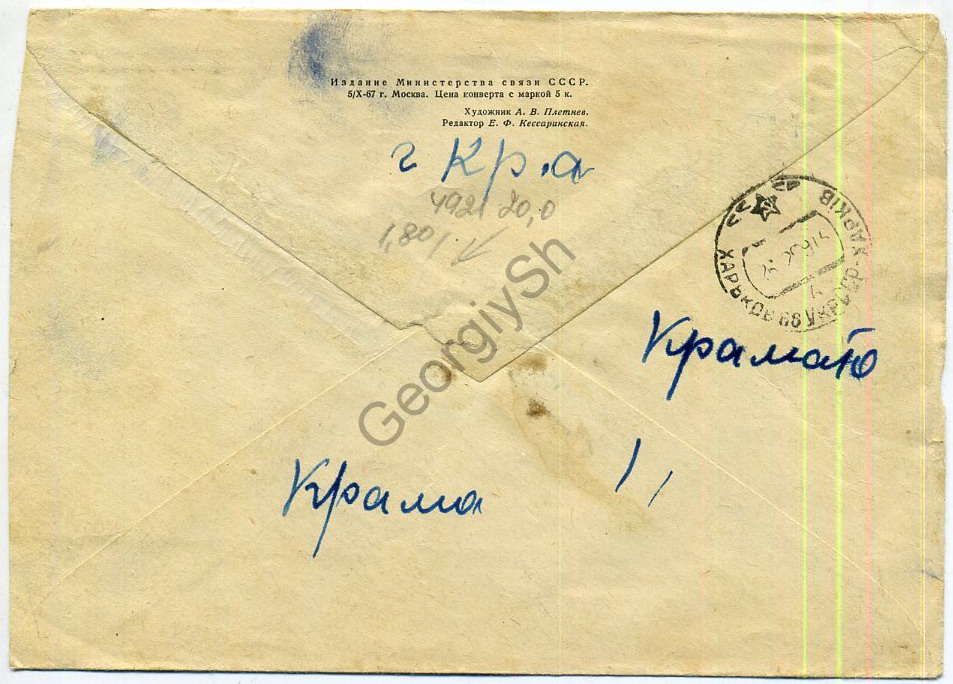 Издание Министерства связи СССР.
5/X-67 г. Москва. Цена конверта с маркой 5 к.
Художник А. В. Плетнев.
Редактор Е. Ф. Кессаринская.
г Кр.а
4921 20,0
1,80
ХАРЬКОВ УКР.ССР ХАРКІВ
GeorgiySh
Крамато
Крама